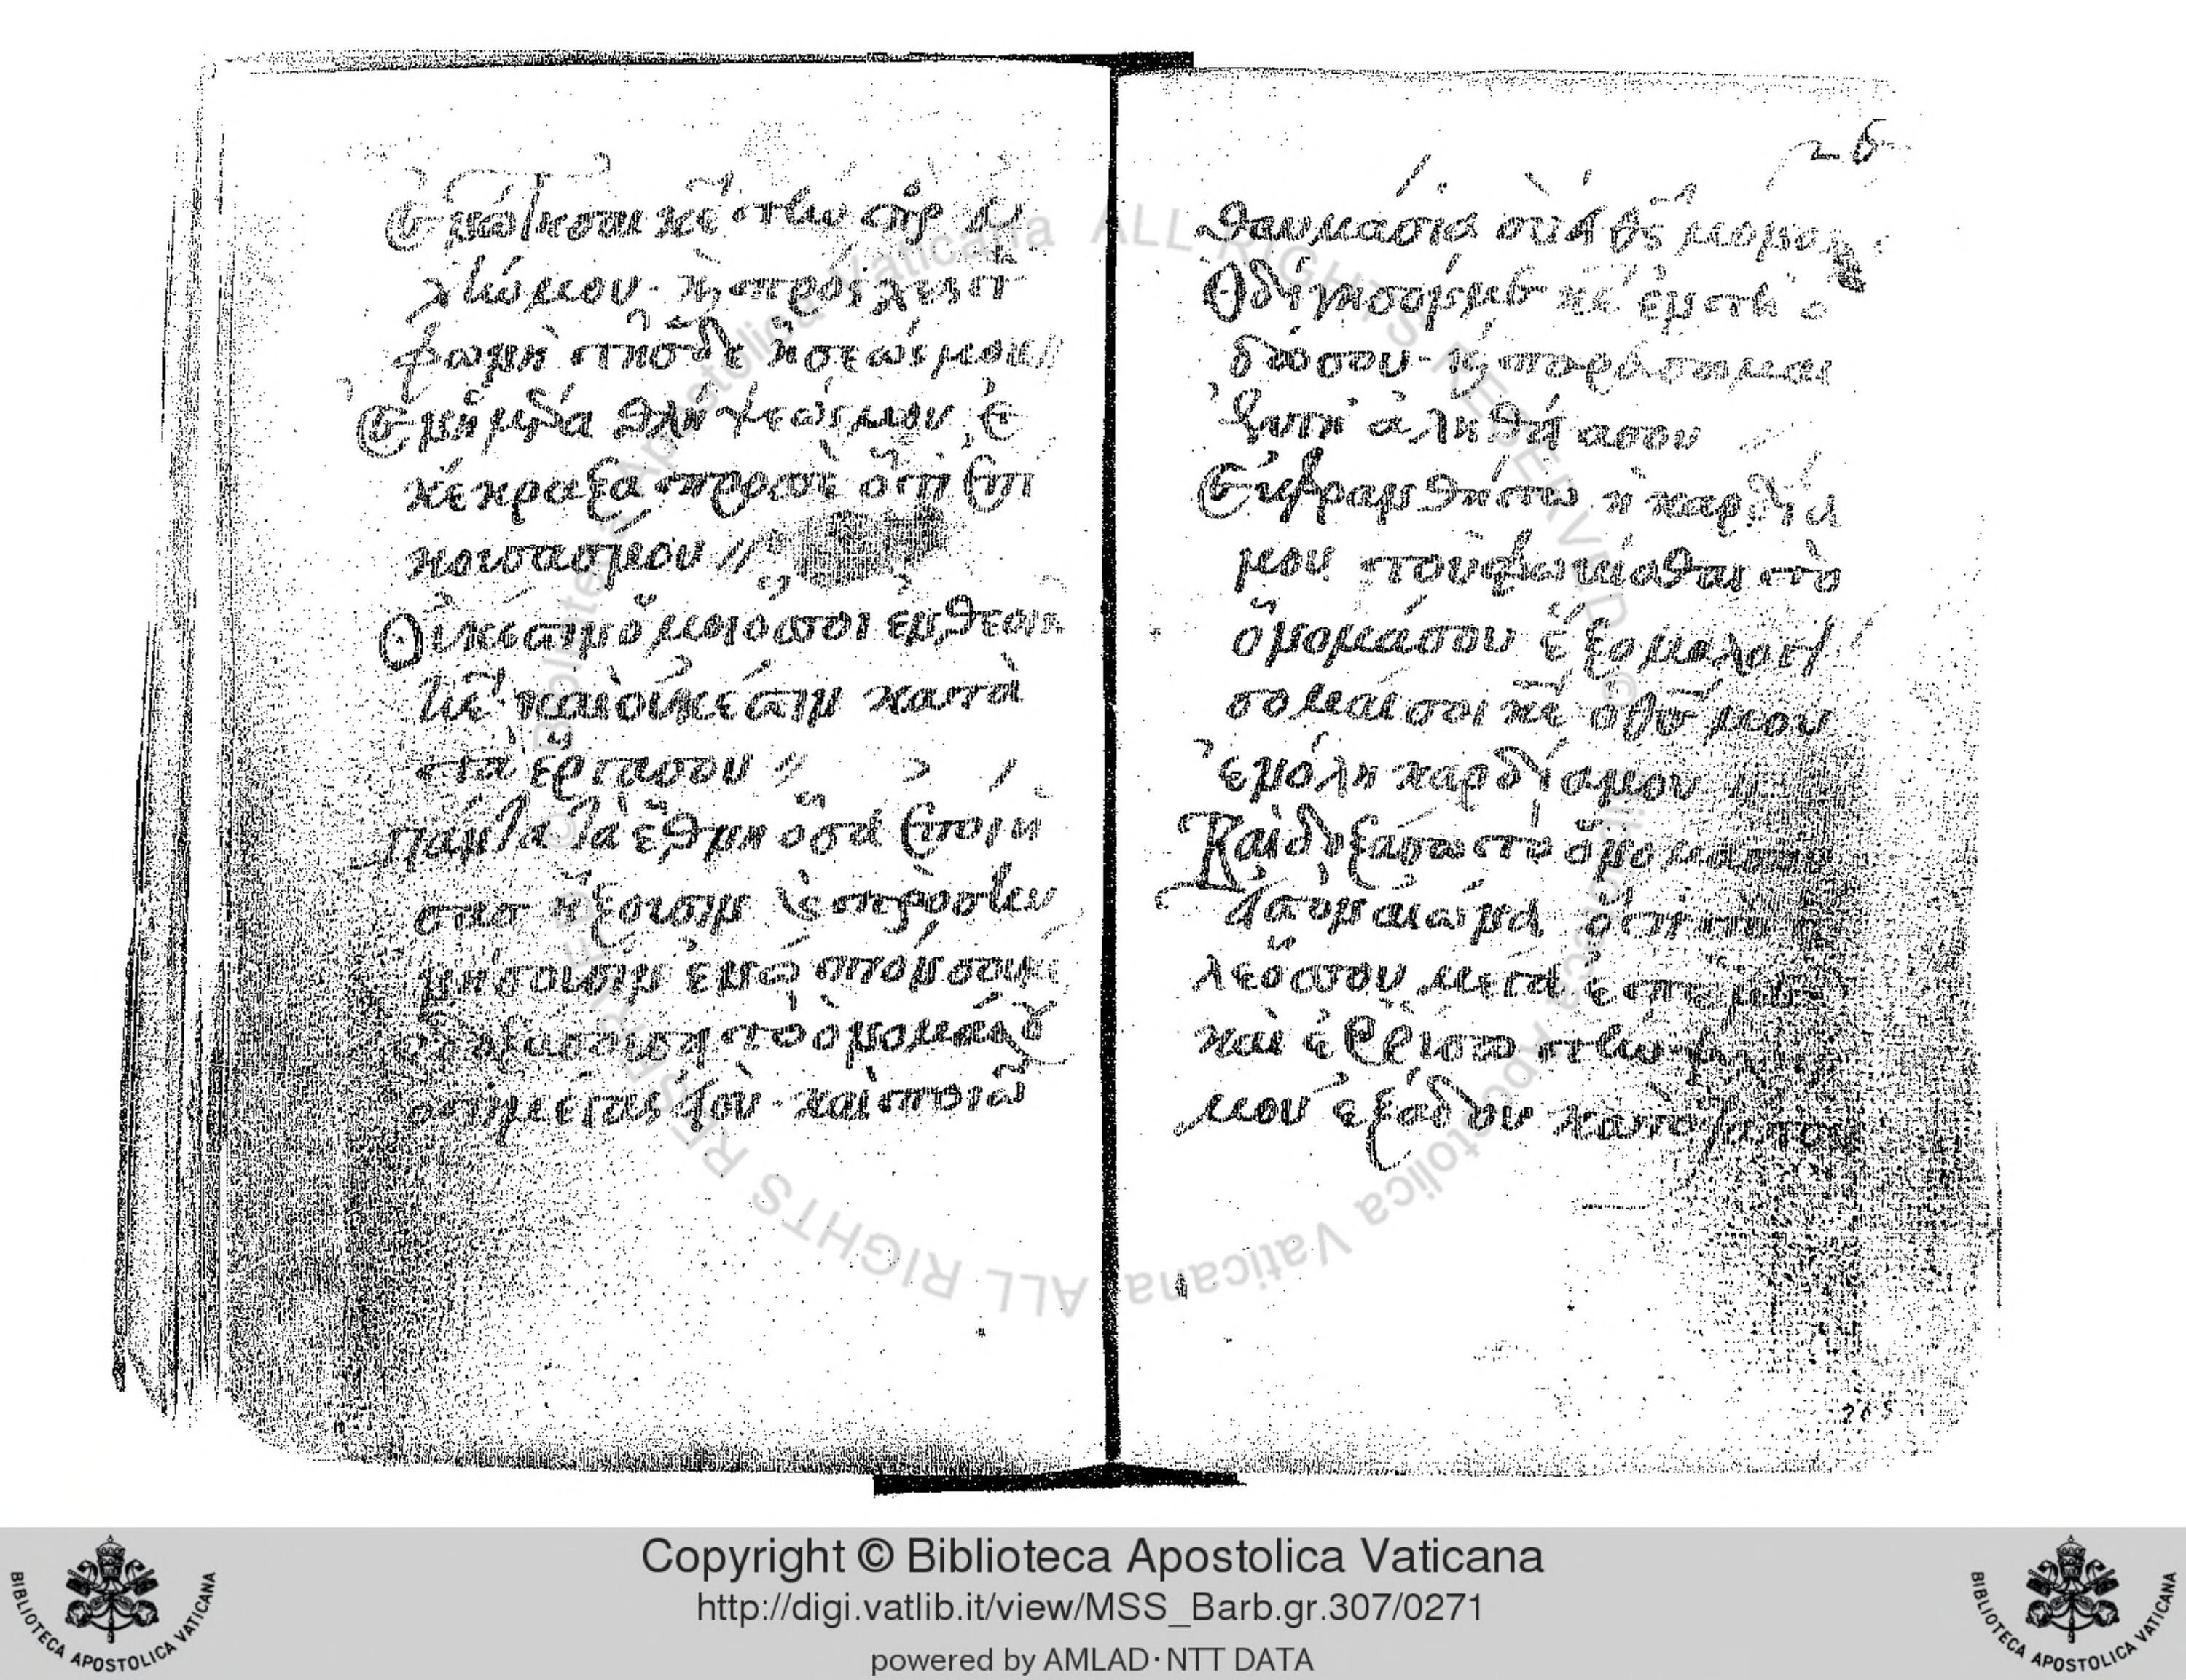 Ἐνώτισαι κε τὴν προσευ
χήν μου· κ πρόσχες τῇ
φωνῇ τῆς δεήσεώς μου //
Ἐν ἡμέρα θλίψεώς μου ἐ
κέκραξα πρὸς σὲ ὅτι ἐπή
κουσάς μου //
Οὐκ ἔστιν ὅμοιός σοι ἐν θεοῖς
κε καὶ οὐκ ἔστιν κατὰ
τὰ ἔργα σου //
Πάντα τὰ ἔθνη ὅσα ἐποίη
σας ἥξουσιν κ προσκυ
νήσουσιν ἐνώπιόν σου κε
κ δοξάσουσι τὸ ὄνομά σου
ὅτι μέγας εἶ σὺ· καὶ ποιῶν
26
θαυμάσια σὺ εἶ ὁ θς μόνος
Ὁδήγησόν με κε ἐν τῇ ὁ
δῷ σου· κ πορεύσομαι
ἐν τῇ ἀληθείᾳ σου //
Εὐφρανθήτω ἡ καρδία
μου τοῦ φοβεῖσθαι τὸ
ὄνομά σου ἐξομολογή
σομαί σοι κε ὁ θς μου
ἐν ὅλῃ καρδίᾳ μου //
Καὶ δοξάσω τὸ ὄνομά σου
εἰς τὸν αἰῶνα ὅτι τὸ ἔ
λεός σου μέγα ἐπ' ἐμέ
καὶ ἐρρύσω τὴν ψυχήν
μου ἐξ ᾅδου κατωτάτου
265
Copyright © Biblioteca Apostolica Vaticana
http://digi.vatlib.it/view/MSS_Barb.gr.307/0271
powered by AMLAD·NTT DATA
BIBLIOTECA APOSTOLICA VATICANA
BIBLIOTECA APOSTOLICA VATICANA